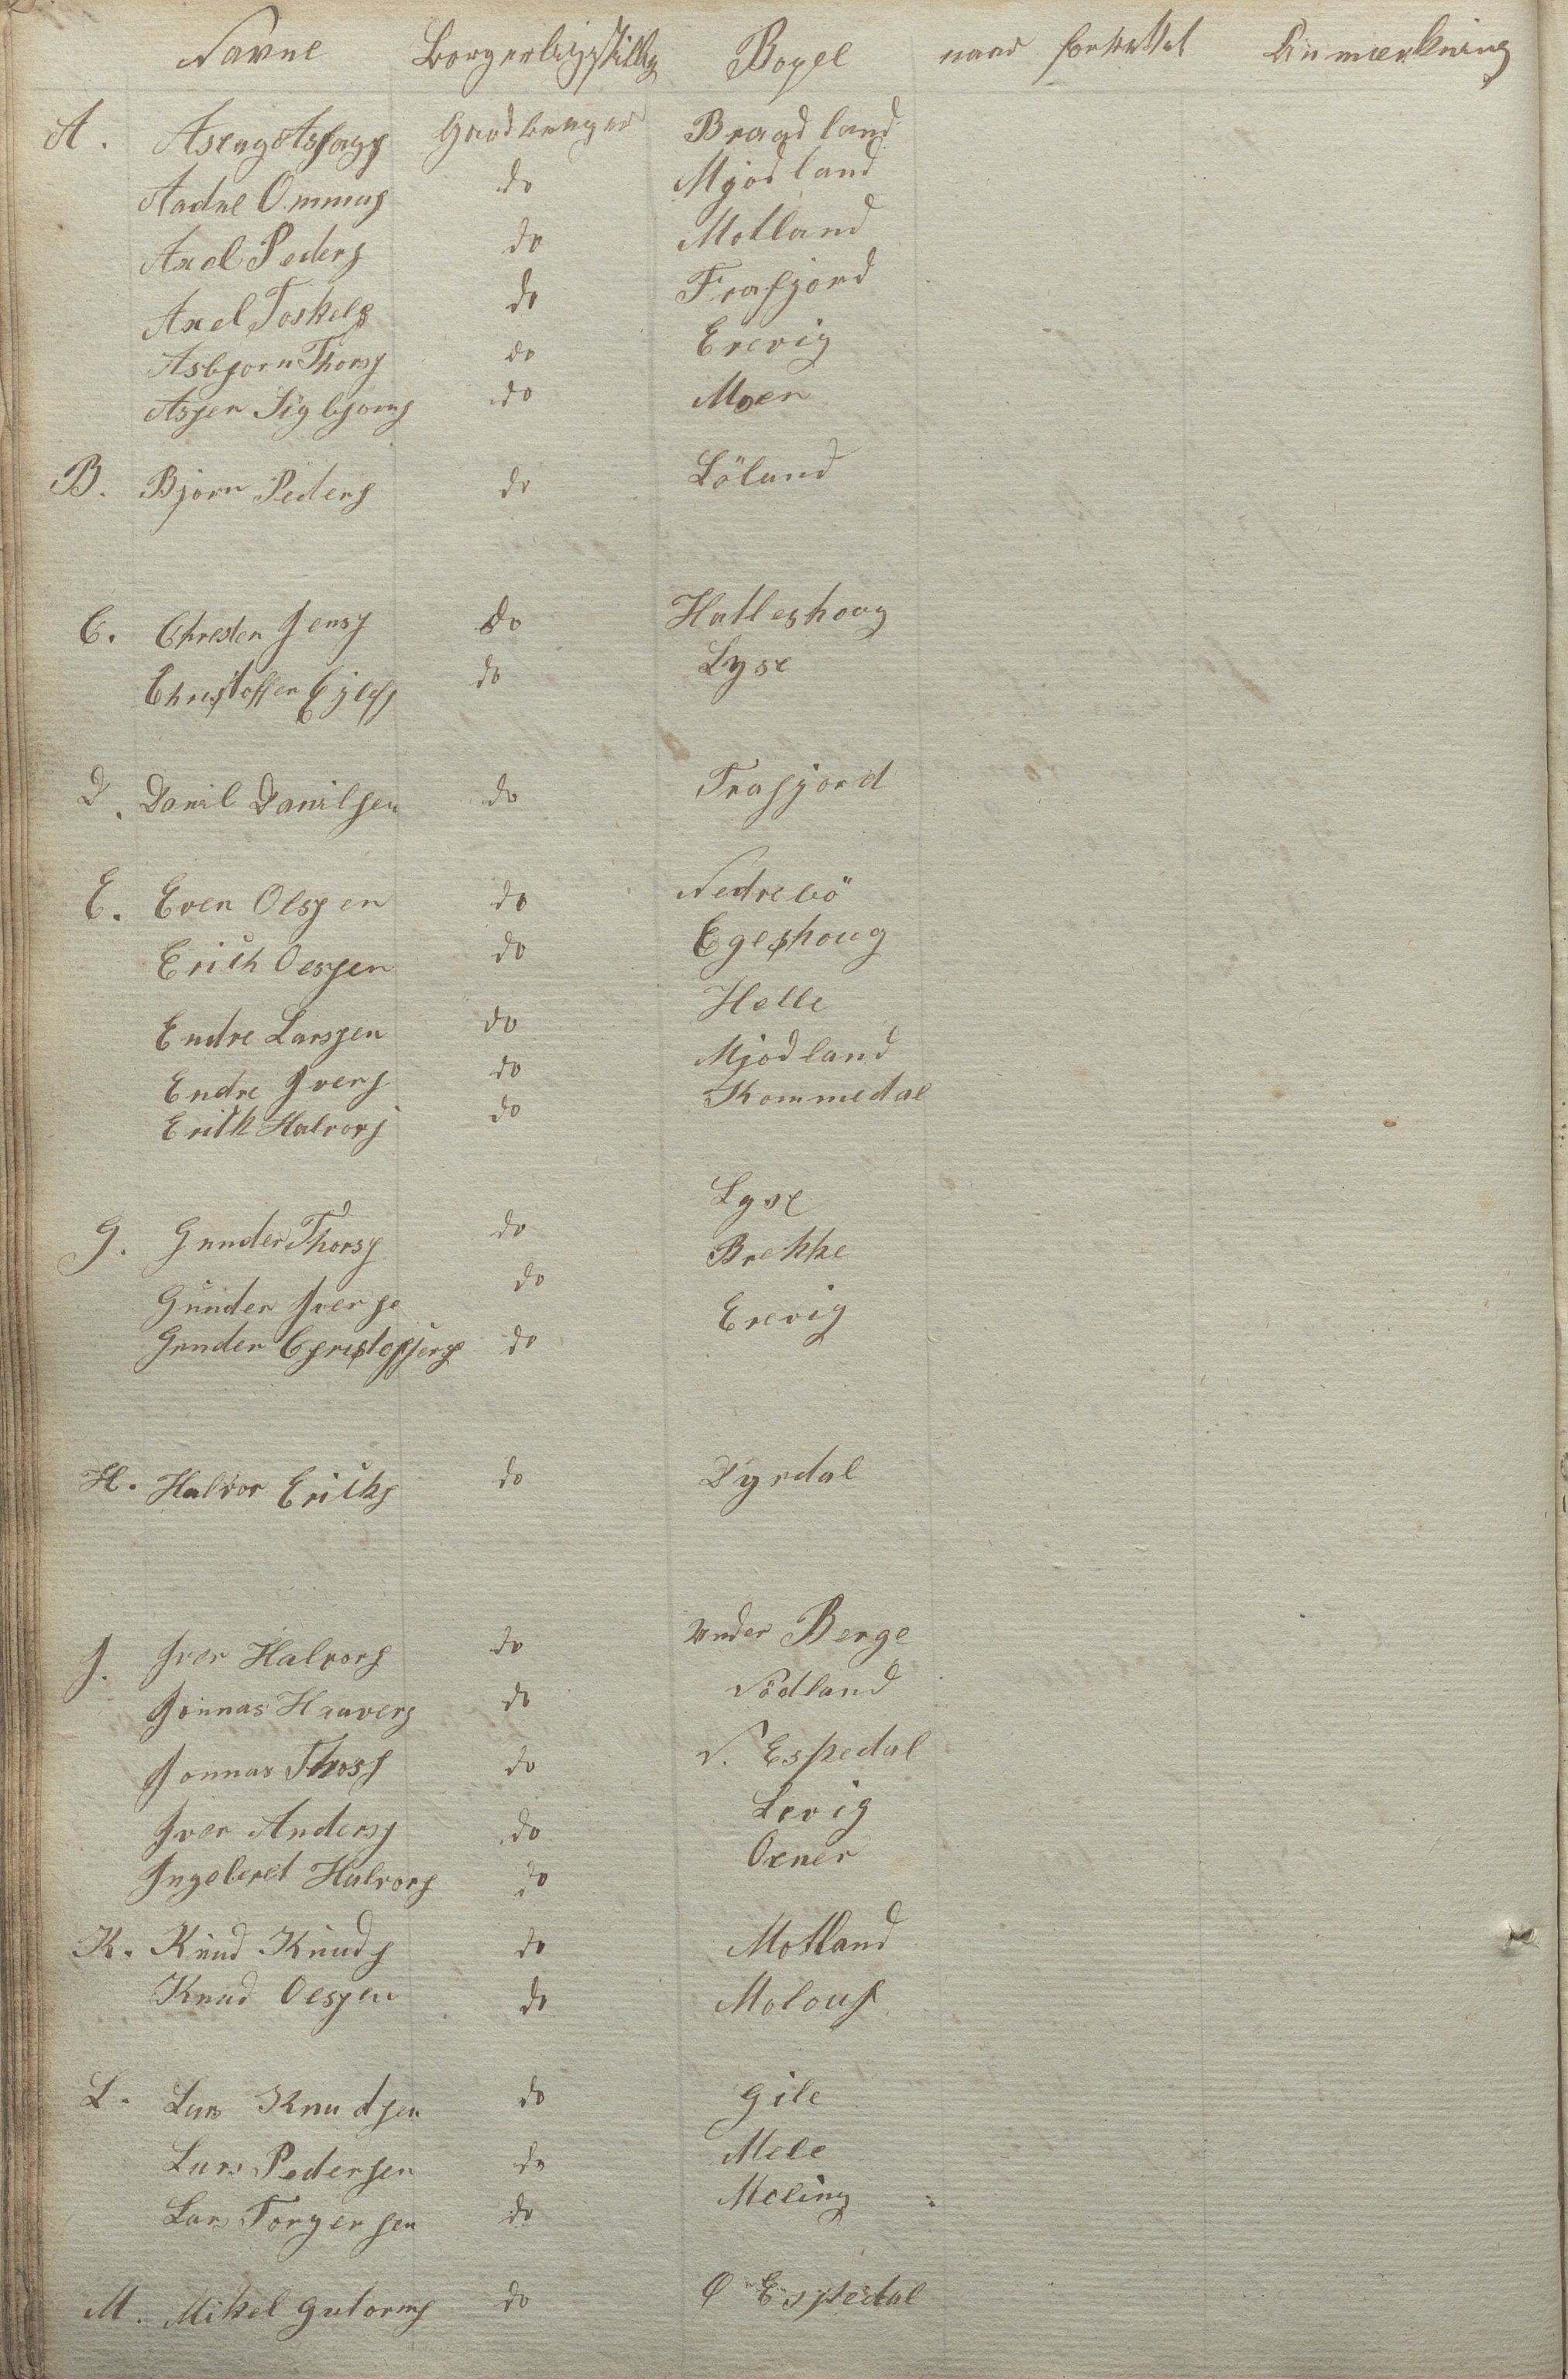 Navne Borgerligstillg Bopel naar fortrettet Anmerkning
A. Aslag Aslags Gaardbruger Braadland
Aadne Ommus do Mjodland
Axel Peders do Motland
Axel Toskels do Frafjord
Asbjorn Thors do Erevig
Asjer Sigbjorns do Moen
B. Bjorn Peders do Löland
C. Chresten Jens do Hatleshoug
Christoffer Ejlefs do Lyse
D. Danil Danilsen do Frafjord
E. Even Olsen do Nedrebö
Erich Oessen do Egeshoug
Endre Larssen do Helle
Endre Ivers do Mjodland
Erich Halvors do Kommedal
G. Gunder Thors do Lyse
Gunder Iverse do Brekke
Gunder Christoffers do Erevig
H. Halvor Ericks do Dyrdal
J. Iver Halvors do Under Berge
Jonnas Haavers do Nödland
Jonnas Thos do N. Espedal
Iver Anders do Levig
Ingebret Halvors do Oxner
K. Knud Knuds do Motland
Knud Oessen do Molouf
L. Lars Knudsen do Gile
Lars Pedersen do Mele
Lars Torgersen do Meling
M. Mikel Gutorms do Ø Espedal